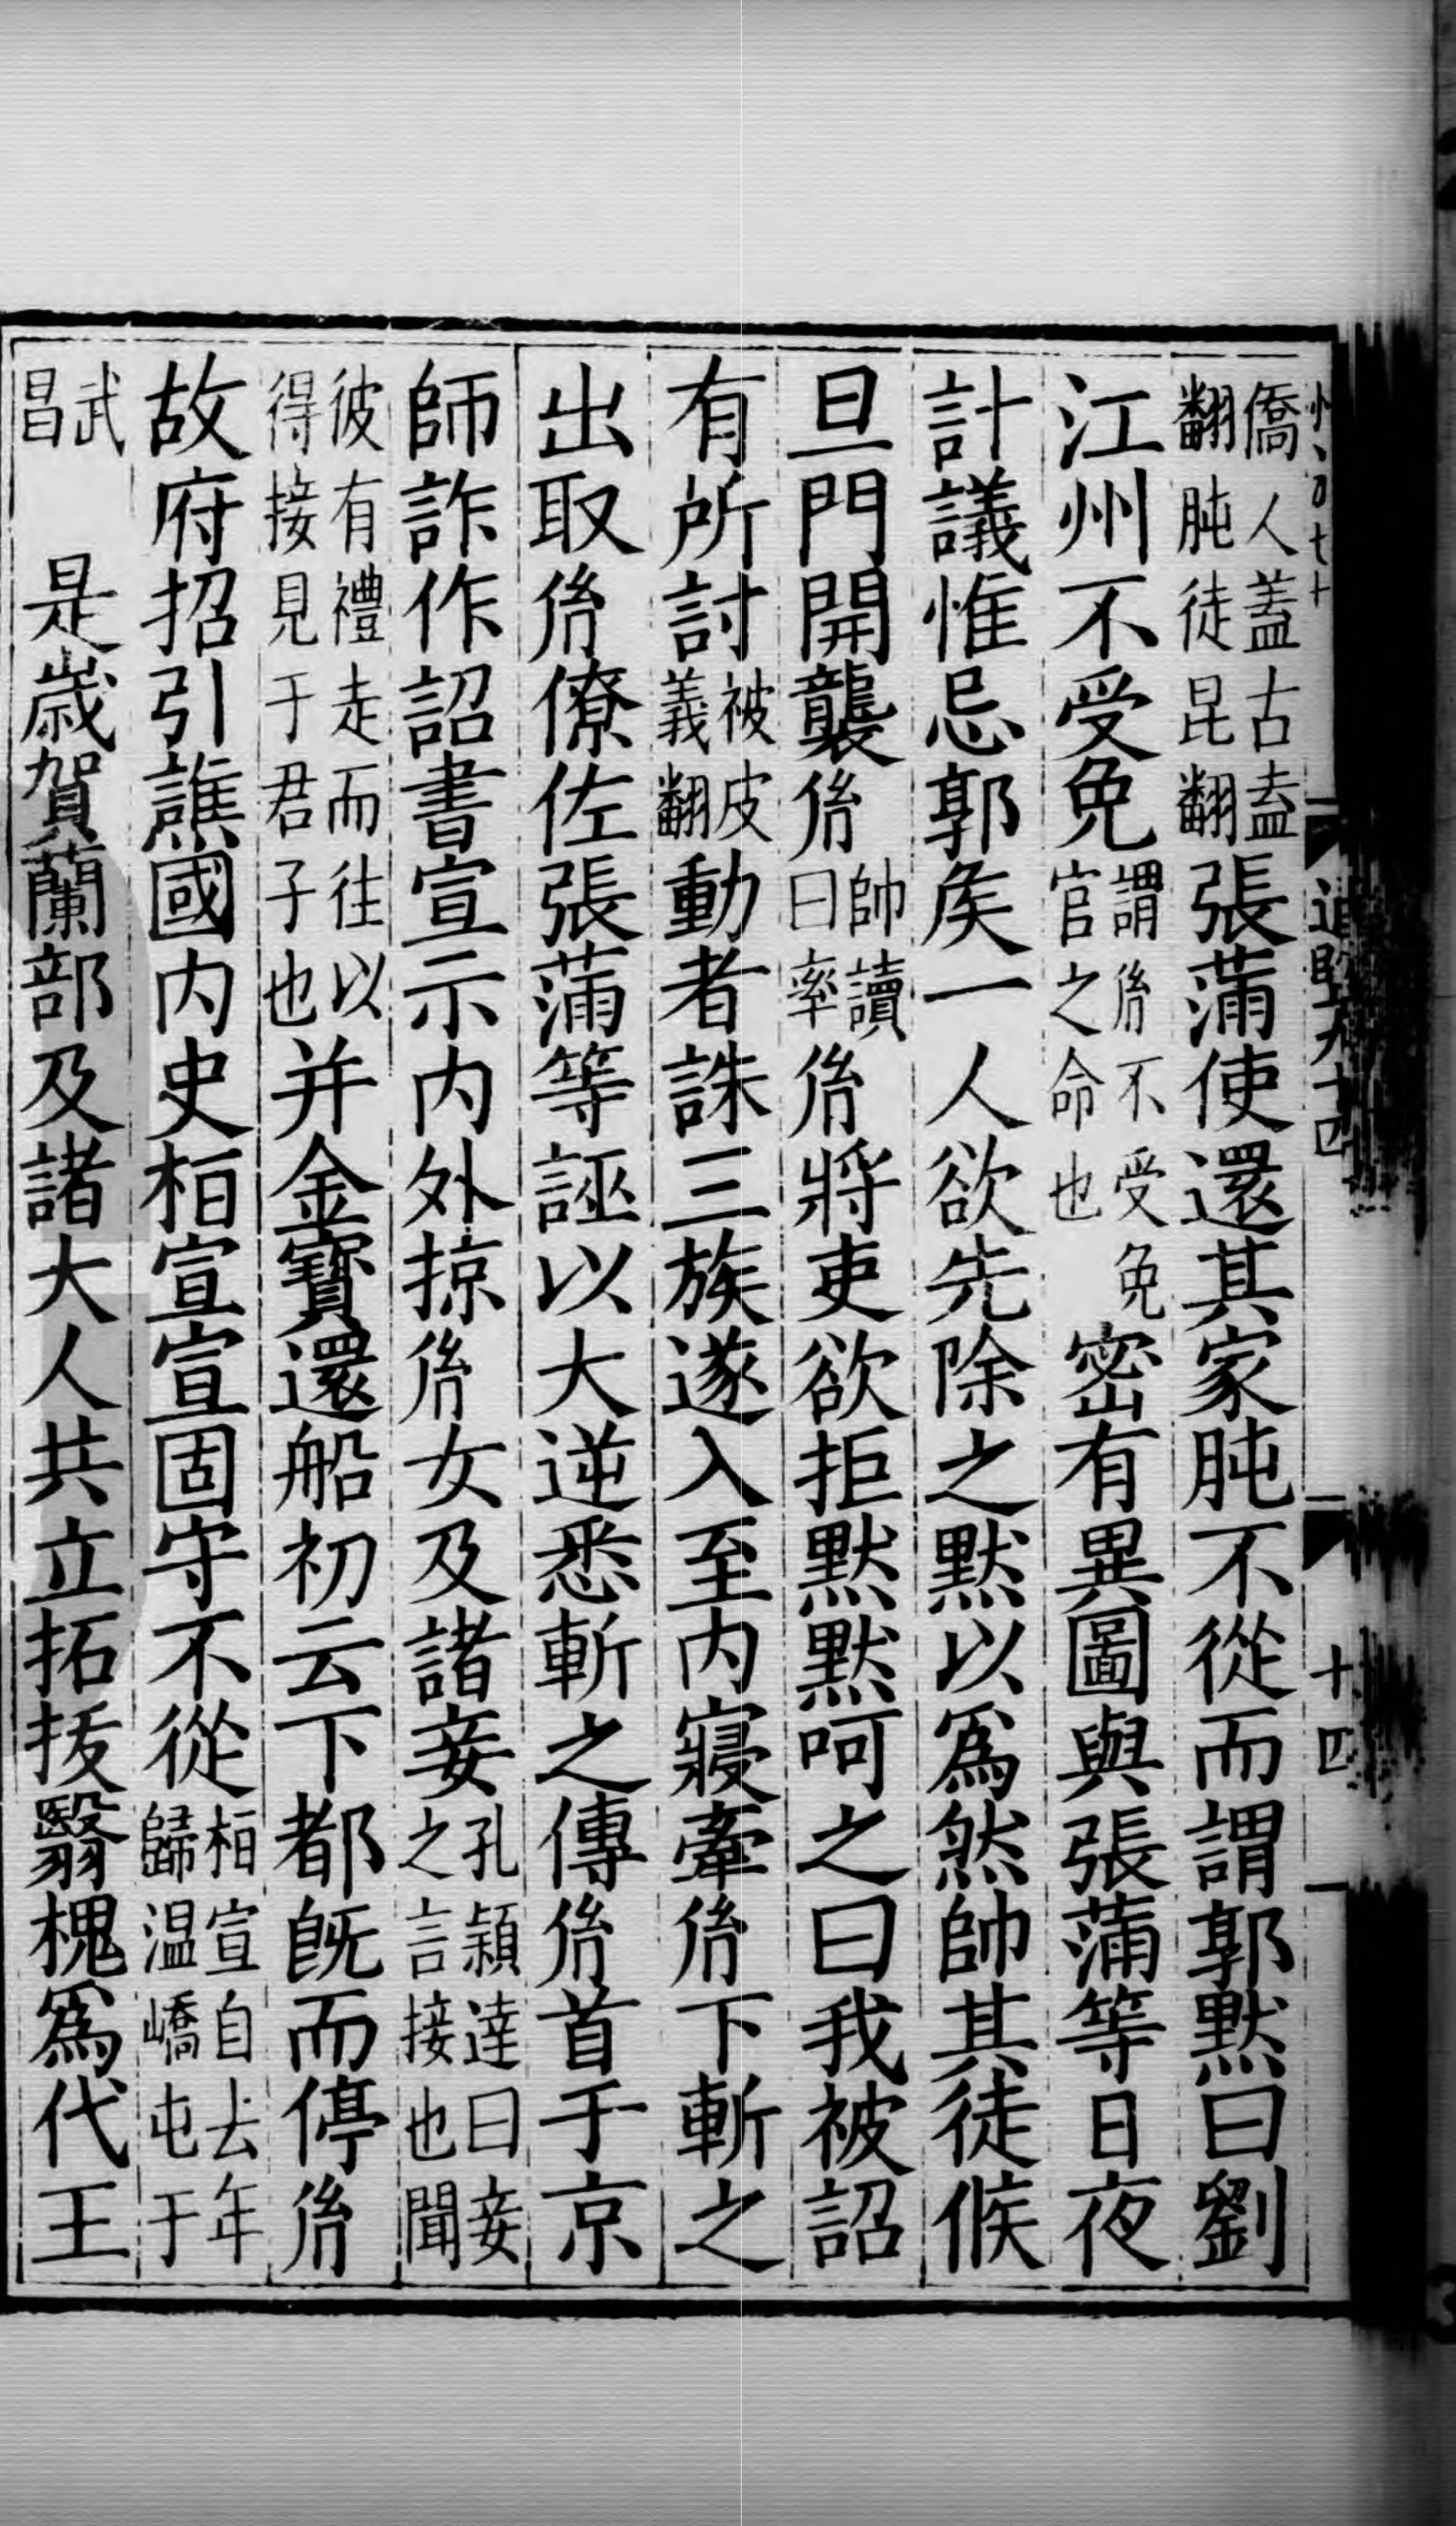 僑人蓋古盍翻肫徒昆翻張蒲使還其家肫不從而謂郭黙曰劉
江州不受免謂㣧不受免官之命也密有異圖與張蒲等日夜
計議惟忌郭矦一人欲先除之黙以爲然帥其徒候
旦門開襲㣧帥讀曰率㣧將吏欲拒黙黙呵之曰我被詔
有所討被皮義翻動者誅三族遂入至内寢牽㣧下斬之
出取㣧僚佐張蒲等誣以大逆悉斬之傳㣧首于京
師詐作詔書宣示内外掠㣧女及諸妾孔穎達曰妾之言接也聞
彼有禮走而往以得接見于君子也并金寶還船初云下都旣而停㣧
故府招引譙國内史桓宣宣固守不從桓宣自去年歸温嶠屯于
武昌是歳賀蘭部及諸大人共立拓拔翳槐爲代王
十四